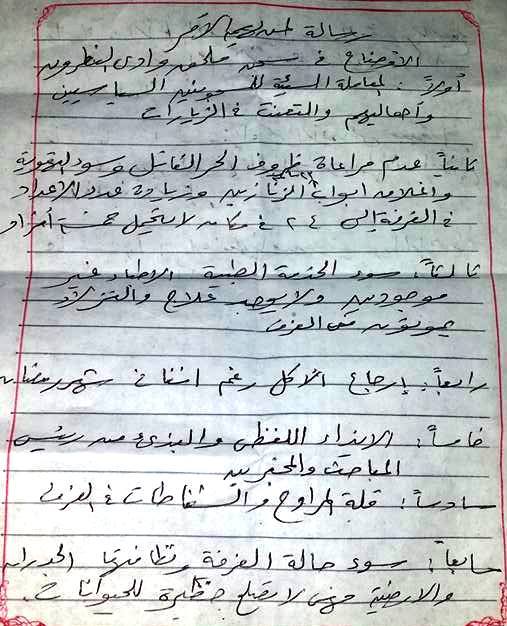 رسالة لمن يهمه الأمر
الأوضاع في سجن ملحق وادى النطرون
أولاً: المعاملة السيئة للمسجونين السياسيين
وأهاليهم والتعنت في الزيارات
ثانياً: عدم مراعاة ظروف الحر القاتل وسوء التهوية
واغلاق ابواب الزنازين وزيادة عدد الاعداد
في الغرفة إلى ٢٤ في مكان لا يتحمل خمسة أفراد
ثالثاً: سوء الخدمة الطبية الاطباء غير
موجودين ولا يوجد علاج والنزلاء
يموتون في الغرف
رابعاً: إرجاع الأكل رغم اننا في شهر رمضان
خامساً: الايذاء اللفظى والبذئ من رئيس
المباحث والمخبرين
سادساً: قلة المراوح والشفاطات في الغرف
سابعاً: سوء حالة الغرفة ونظافتها الجدران
والارضية وهى لا تصلح حظيرة للحيوانات.